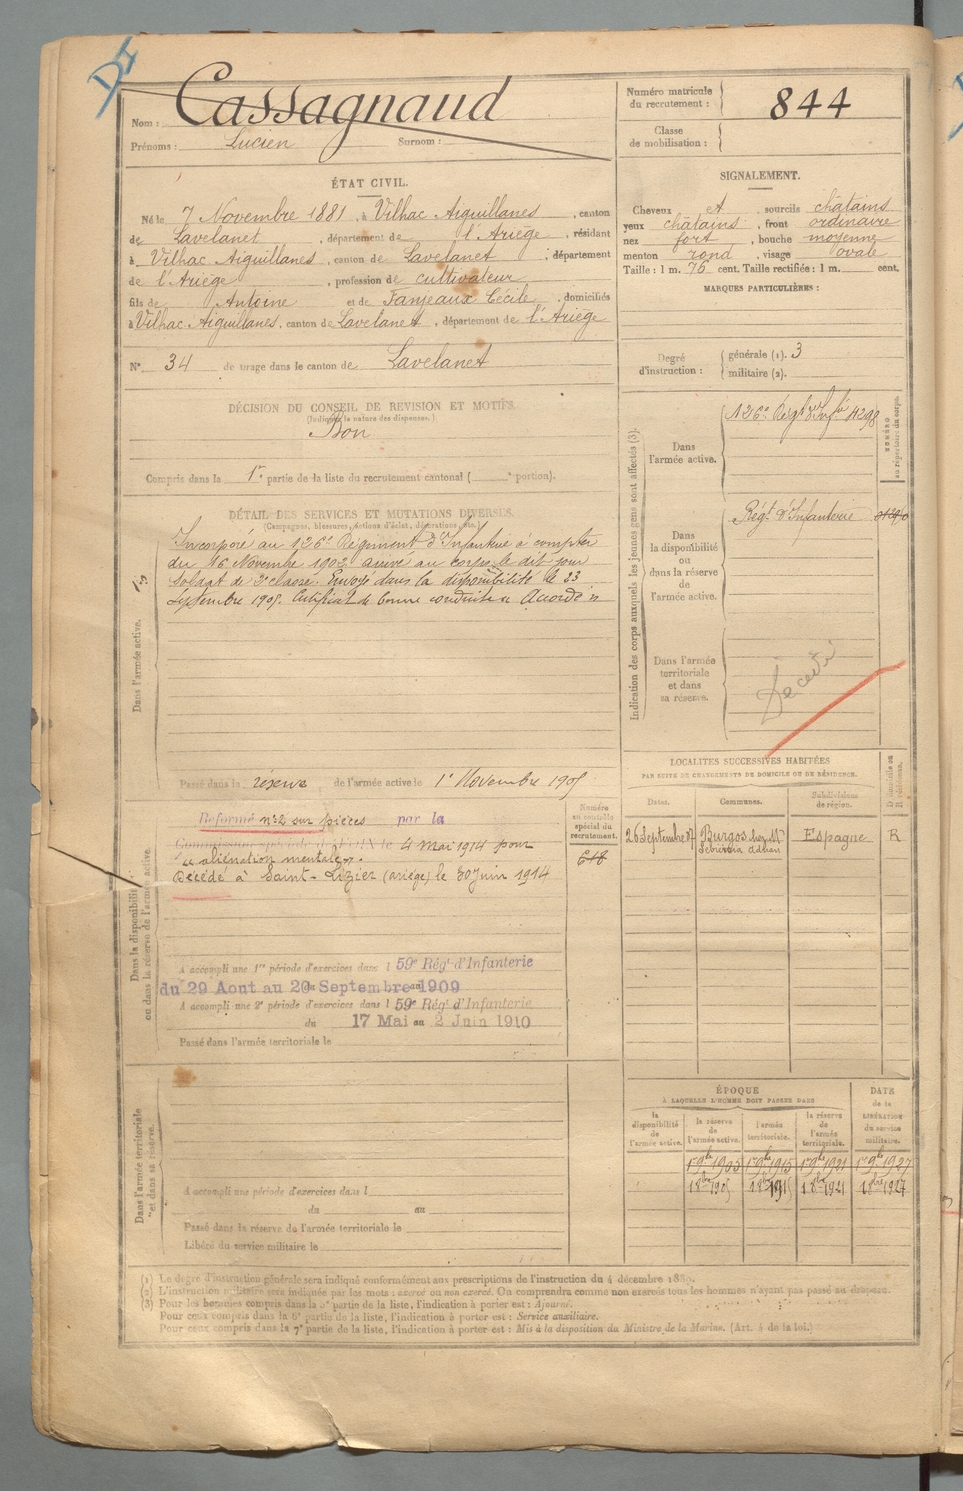 D4
Nom : Cassagnaud
Prénoms : Lucien Surnom :
Numéro matricule du recrutement : 844
Classe de mobilisation :
ÉTAT CIVIL.
Né le 7 Novembre 1881, à Vilhac Aiguillanes, canton
de Lavelanet, département de l'Ariège, résidant
à Vilhac Aiguillanes, canton de Lavelanet, département
de l'Ariège, profession de cultivateur
fils de Antoine et de Fanjeaux Cécile, domiciliés
à Vilhac Aiguillanes, canton de Lavelanet, département de l'Ariège
N° 34 de tirage dans le canton de Lavelanet
SIGNALEMENT.
Cheveux et, sourcils châtains
yeux châtains, front ordinaire
nez fort, bouche moyenne
menton rond, visage ovale
Taille : 1 m. 76 cent. Taille rectifiée : 1 m. cent.
MARQUES PARTICULIÈRES :
Degré d'instruction : générale (1). 3
militaire (2).
DÉCISION DU CONSEIL DE REVISION ET MOTIFS.
(Indiquer la nature des dispenses.)
Bon
Compris dans la 1re partie de la liste du recrutement cantonal ( e portion).
DÉTAIL DES SERVICES ET MUTATIONS DIVERSES.
(Campagnes, blessures, actions d'éclat, décorations, etc.)
Dans l'armée active.
Incorporé au 126e Régiment d'Infanterie à compter
du 16 Novembre 1902 arrivé au corps le dit jour
Soldat de 2e classe. Envoyé dans la disponibilité le 23
Septembre 1905. Certificat de bonne conduite Accordé
Passé dans la réserve de l'armée active le 1r Novembre 1905
Indication des corps auxquels les jeunes gens sont affectés (3).
NUMÉRO au répertoire du corps.
Dans l'armée active.
126e Régt d'Infie 4298
Dans la disponibilité ou dans la réserve de l'armée active.
Régt d'Infanterie
Dans l'armée territoriale et dans sa réserve.
Décédé
Dans la disponibilité ou dans la réserve de l'armée active.
Réformé n°2 sur pièces par la
Commission spéciale de FOIX le 4 mai 1914 pour
"aliénation mentale".
Décédé à Saint-Lizier (ariège) le 30 juin 1914
Numéro au contrôle spécial du recrutement.
A accompli une 1re période d'exercices dans l 59e Régt d'Infanterie
du 29 Aout au 20 Septembre 1909
A accompli une 2e période d'exercices dans l 59e Régt d'Infanterie
du 17 Mai au 2 Juin 1910
Passé dans l'armée territoriale le
LOCALITÉS SUCCESSIVES HABITÉES
PAR SUITE DE CHANGEMENTS DE DOMICILE OU DE RÉSIDENCE.
Dates. Communes. Subdivisions de région. D domicile ou R résidence.
26 Septembre 07 Burgos chez Mr Espagne R
Dans l'armée territoriale et dans sa réserve.
A accompli une période d'exercices dans l
du au
Passé dans la réserve de l'armée territoriale le
Libéré du service militaire le
ÉPOQUE
À LAQUELLE L'HOMME DOIT PASSER DANS
DATE de la LIBÉRATION du service militaire.
la disponibilité de l'armée active. la réserve de l'armée active. l'armée territoriale. la réserve de l'armée territoriale.
1r 9bre 1905 1r 9bre 1915 1r 9bre 1921 1r 9bre 1927
1 8bre 1905 1 8bre 1915 1 8bre 1921 1 8bre 1927
(1) Le degré d'instruction générale sera indiqué conformément aux prescriptions de l'instruction du 4 décembre 1889.
(2) L'instruction militaire sera indiquée par les mots : exercé ou non exercé. On comprendra comme non exercés tous les hommes n'ayant pas passé au drapeau.
(3) Pour les hommes compris dans la 5e partie de la liste, l'indication à porter est : Ajourné.
Pour ceux compris dans la 6e partie de la liste, l'indication à porter est : Service auxiliaire.
Pour ceux compris dans la 7e partie de la liste, l'indication à porter est : Mis à la disposition du Ministre de la Marine. (Art. 4 de la loi.)